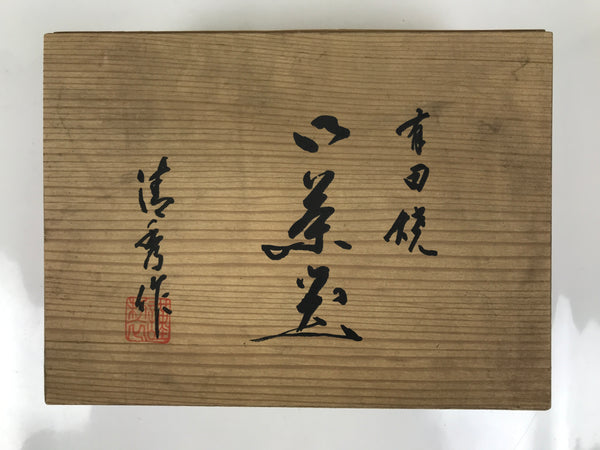 有田焼
御茶器
清秀作